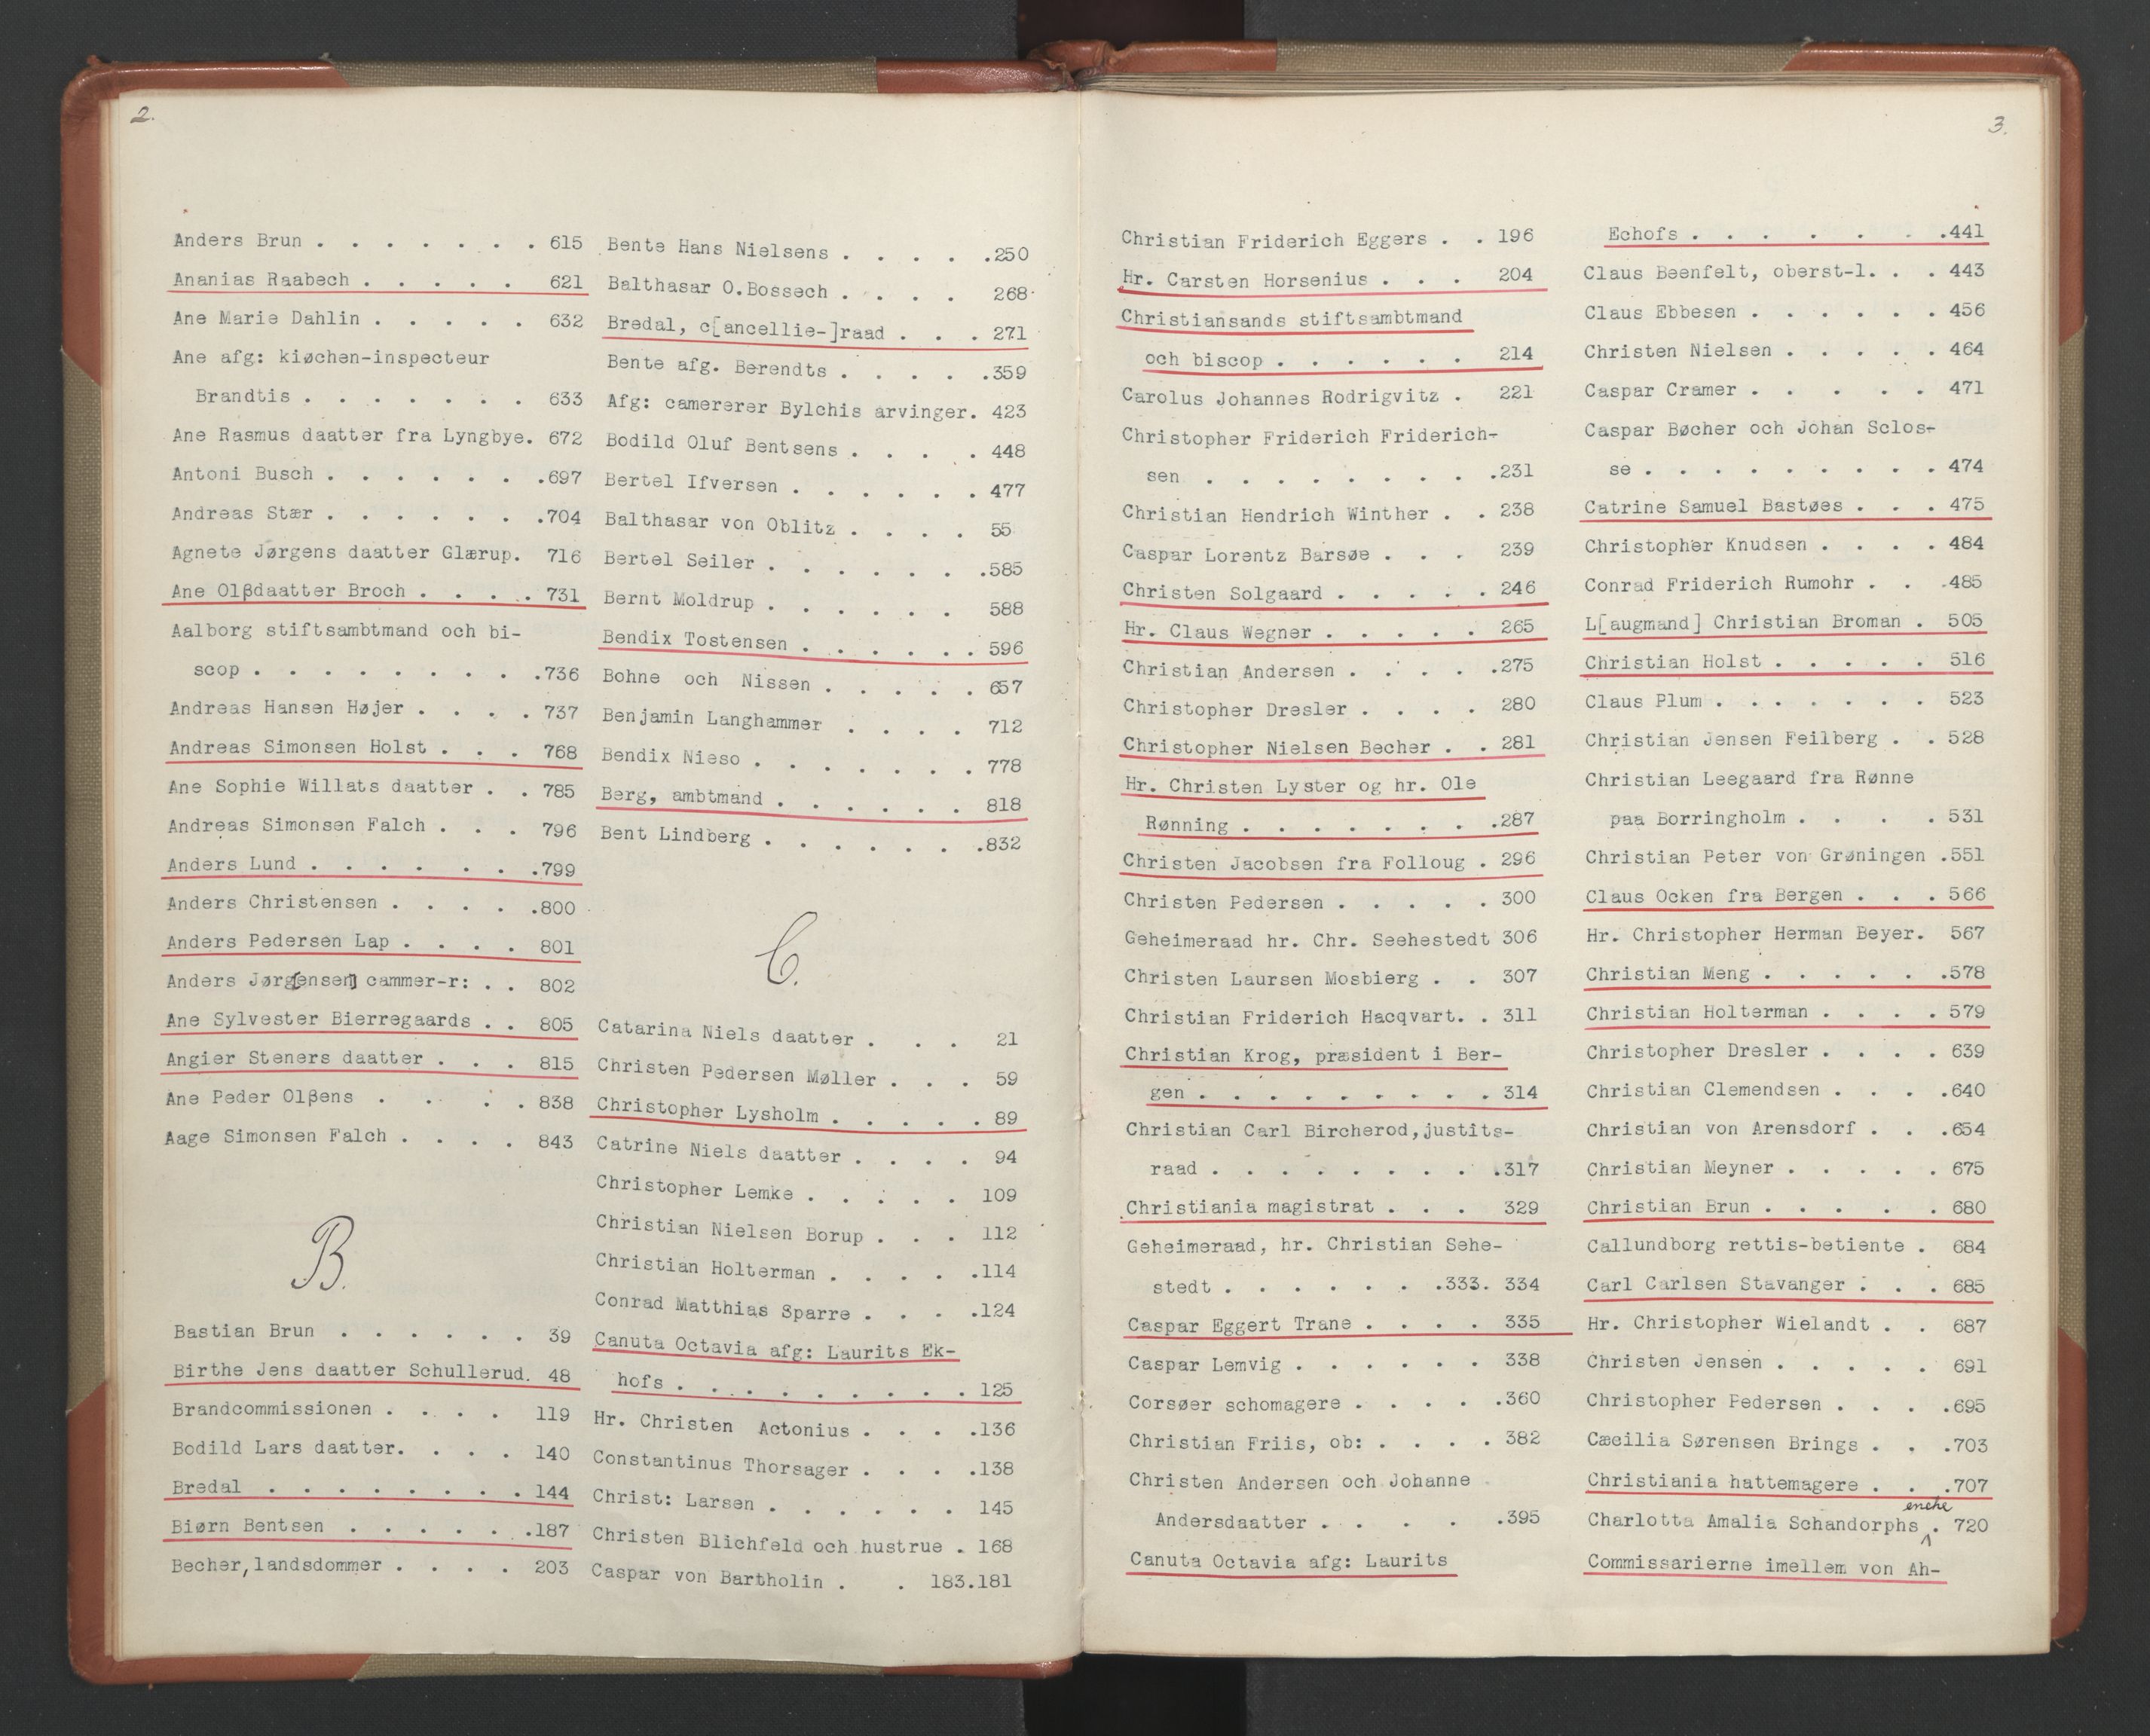 2.
Anders Brun . . . . . . . 615
Ananias Raabech . . . . . 621
Ane Marie Dahlin . . . . . 632
Ane afg: kiøchen-inspecteur
Brandtis . . . . . . . 633
Ane Rasmus daatter fra Lyngbye. 672
Antoni Busch . . . . . . .697
Andreas Stær . . . . . . .704
Agnete Jørgens daatter Glærup. 716
Ane Olβdaatter Broch . . . . 731
Aalborg stiftsambtmand och bi-
scop . . . . . . . . .736
Andreas Hansen Højer . . . . 737
Andreas Simonsen Holst . . . 768
Ane Sophie Willats daatter . . 785
Andreas Simonsen Falch . . . 796
Anders Lund . . . . . . .799
Anders Christensen . . . . .800
Anders Pedersen Lap . . . . 801
Anders Jør[gensen] cammer-r: . . 802
Ane Sylvester Bierregaards . . 805
Angier Steners daatter . . . 815
Ane Peder Olβens . . . . 838
Aage Simonsen Falch . . . . 843
B.
Bastian Brun . . . . . . 39
Birthe Jens daatter Schullerud. 48
Brandcommissionen . . . . 119
Bodild Lars daatter. . . . 140
Bredal . . . . . . . . 144
Biørn Bentsen . . . . . .187
Becher,landsdommer . . . . 203
Bente Hans Nielsens . . . . .250
Balthasar O.Bossech . . . . 268
Bredal, c[ancellie-]raad . . . 271
Bente afg. Berendts . . . . .359
Afg: camererer Bylchis arvinger. 423
Bodild Oluf Bentsens . . . . 448
Bertel Ifversen . . . . . . 477
Balthasar von Oblitz . . . . 55
Bertel Seiler . . . . . . .585
Bernt Moldrup . . . . . . 588
Bendix Tostensen . . . . . . 596
Bohne och Nissen . . . . . 657
Benjamin Langhammer . . . . 712
Bendix Nieso . . . . . . . 778
Berg, ambtmand . . . . . . 818
Bent Lindberg . . . . . . .832
C.
Catarina Niels daatter . . . 21
Christen Pedersen Møller . . . 59
Christopher Lysholm . . . . . 89
Catrine Niels daatter . . . . 94
Christopher Lemke . . . . . 109
Christian Nielsen Borup . . . 112
Christian Holterman . . . . .114
Conrad Matthias Sparre . . . .124
Canuta Octavia afg: Laurits Ek-
hofs . . . . . . . . . 125
Hr. Christen Actonius . . . .136
Constantinus Thorsager . . . .138
Christ: Larsen . . . . . . 145
Christen Blichfeld och hustrue . 168
Caspar von Bartholin . . 183.181
3.
Christian Friderich Eggers . . 196
Hr. Carsten Horsenius . . . 204
Christiansands stiftsambtmand
och biscop . . . . . . 214
Carolus Johannes Rodrigvitz . 221
Christopher Friderich Friderich-
sen . . . . . . . . .231
Christian Hendrich Winther . . 238
Caspar Lorentz Barsøe . . . 239
Christen Solgaard . . . . . 246
Hr. Claus Wegner . . . . . 265
Christian Andersen . . . . .275
Christopher Dresler . . . . 280
Christopher Nielsen Becher . . 281
Hr. Christen Lyster og hr. Ole
Rønning . . . . . . . .287
Christen Jacobsen fra Folloug . 296
Christen Pedersen . . . . . 300
Geheimeraad hr. Chr. Seehestedt 306
Christen Laursen Mosbierg . . 307
Christian Friderich Hacqvart. . 311
Christian Krog, præsident i Ber-
gen . . . . . . . . . 314
Christian Carl Bircherod,justits-
raad . . . . . . . . .317
Christiania magistrat . . . 329
Geheimeraad, hr. Christian Sehe-
stedt . . . . . . .333. 334
Caspar Eggert Trane . . . . 335
Caspar Lemvig . . . . . . 338
Corsøer schomagere . . . . .360
Christian Friis, ob: . . . . 382
Christen Andersen och Johanne
Andersdaatter . . . . .395
Canuta Octavia afg: Laurits
Echofs . . . . . . . .441
Claus Beenfelt, oberst-l. . . 443
Claus Ebbesen . . . . . . 456
Christen Nielsen . . . . . 464
Caspar Cramer . . . . . 471
Caspar Bøcher och Johan Sclos-
se . . . . . . . . . 474
Catrine Samuel Bastøes . . . 475
Christopher Knudsen . . . . 484
Conrad Friderich Rumohr . . .485
L[augmand] Christian Broman . 505
Christian Holst . . . . . 516
Claus Plum . . . . . . . 523
Christian Jensen Feilberg . . 528
Christian Leegaard fra Rønne
paa Borringholm . . . . 531
Christian Peter von Grøningen .551
Claus Ocken fra Bergen . . . 566
Hr. Christopher Herman Beyer. 567
Christian Meng . . . . . .578
Christian Holterman . . . . 579
Christopher Dresler . . . . 639
Christian Clemendsen . . . .640
Christian von Arensdorf . . .654
Christian Meyner . . . . . 675
Christian Brun . . . . . 680
Callundborg rettis-betiente . 684
Carl Carlsen Stavanger . . . 685
Hr. Christopher Wielandt . . 687
Christen Jensen . . . . . 691
Christopher Pedersen . . . .695
Cæcilia Sørensen Brings . . .703
Christiania hattemagere . . .707
enche
Charlotta Amalia Schandorphs . 720
Commissarierne imellem von Ah-